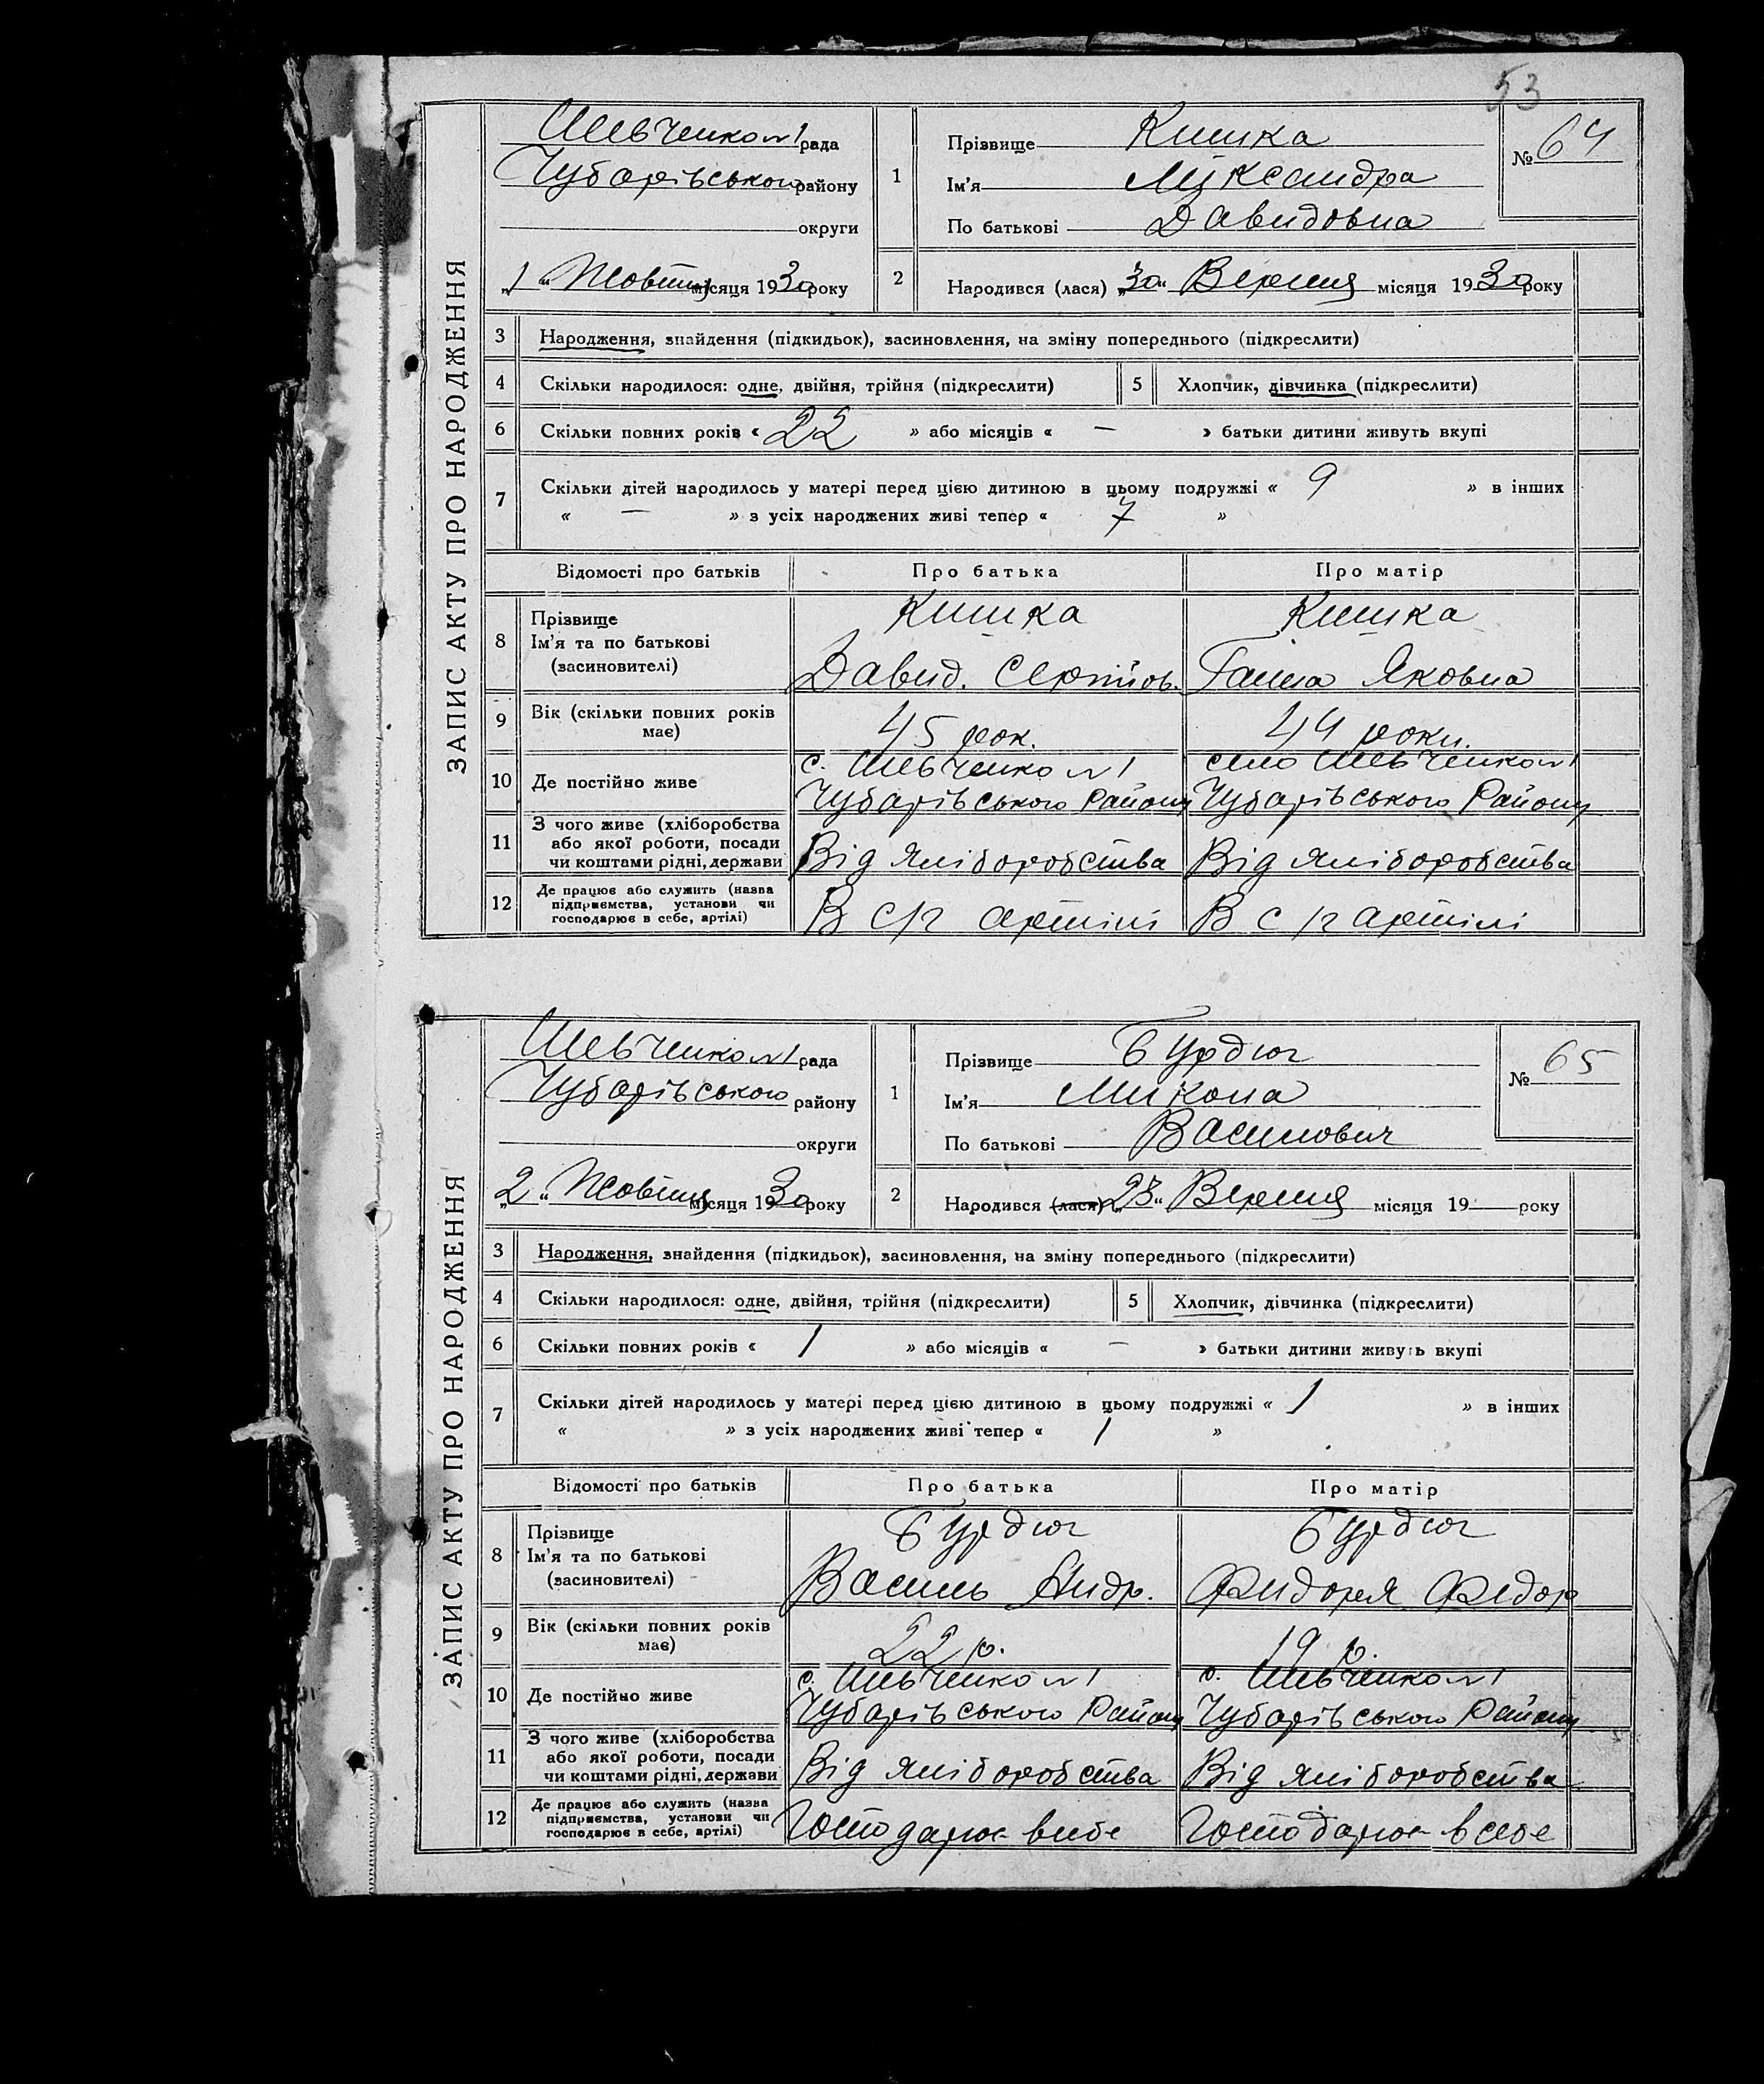 53
ЗАПИС АКТУ ПРО НАРОДЖЕННЯ
Шевченко №1 рада
Чубарівського району
округи
„1“ Жовтня місяця 1930 року
1
Прізвище Кишка
Ім'я Лександра
По батькові Давидовна
№ 64
2
Народився (лася) „30“ Вересня місяця 1930 року
3 Народження, знайдення (підкидьок), засиновлення, на зміну попереднього (підкреслити)
4 Скільки народилося: одне, двійня, трійня (підкреслити) 5 Хлопчик, дівчинка (підкреслити)
6 Скільки повних років « 22 » або місяців « — » батьки дитини живуть вкупі
7 Скільки дітей народилось у матері перед цією дитиною в цьому подружжі « 9 » в інших
« — » з усіх народжених живі тепер « 7 »
Відомості про батьків Про батька Про матір
8 Прізвище Ім'я та по батькові (засиновителі)
Кишка Кишка
Давид. Сергійов. Ганна Яковна
9 Вік (скільки повних років має) 45 рок. 44 роки.
10 Де постійно живе
с. Шевченко №1 село Шевченко №1
Чубарівського Району Чубарівського Району
11 З чого живе (хліборобства або якої роботи, посади чи коштами рідні, держави
Від хліборобства Від хліборобства
12 Де працює або служить (назва підприємства, установи чи господарює в себе, артілі)
В с/г артілі В с/г артілі
ЗАПИС АКТУ ПРО НАРОДЖЕННЯ
Шевченко №1 рада
Чубарівського району
округи
„2“ Жовтня місяця 1930 року
1
Прізвище Бурдюг
Ім'я Микола
По батькові Васильович
№ 65
2
Народився (лася) „28“ Вересня місяця 19 року
3 Народження, знайдення (підкидьок), засиновлення, на зміну попереднього (підкреслити)
4 Скільки народилося: одне, двійня, трійня (підкреслити) 5 Хлопчик, дівчинка (підкреслити)
6 Скільки повних років « 1 » або місяців « — » батьки дитини живуть вкупі
7 Скільки дітей народилось у матері перед цією дитиною в цьому подружжі « 1 » в інших
« » з усіх народжених живі тепер « 1 »
Відомості про батьків Про батька Про матір
8 Прізвище Ім'я та по батькові (засиновителі)
Бурдюг Бурдюг
Василь Андр. Федор
9 Вік (скільки повних років має) 22 р. 19 р.
10 Де постійно живе
с. Шевченко №1 с. Шевченко №1
Чубарівського Району Чубарівського Району
11 З чого живе (хліборобства або якої роботи, посади чи коштами рідні, держави
Від хліборобства Від хліборобства
12 Де працює або служить (назва підприємства, установи чи господарює в себе, артілі)
Господарює в себе Господарює в себе